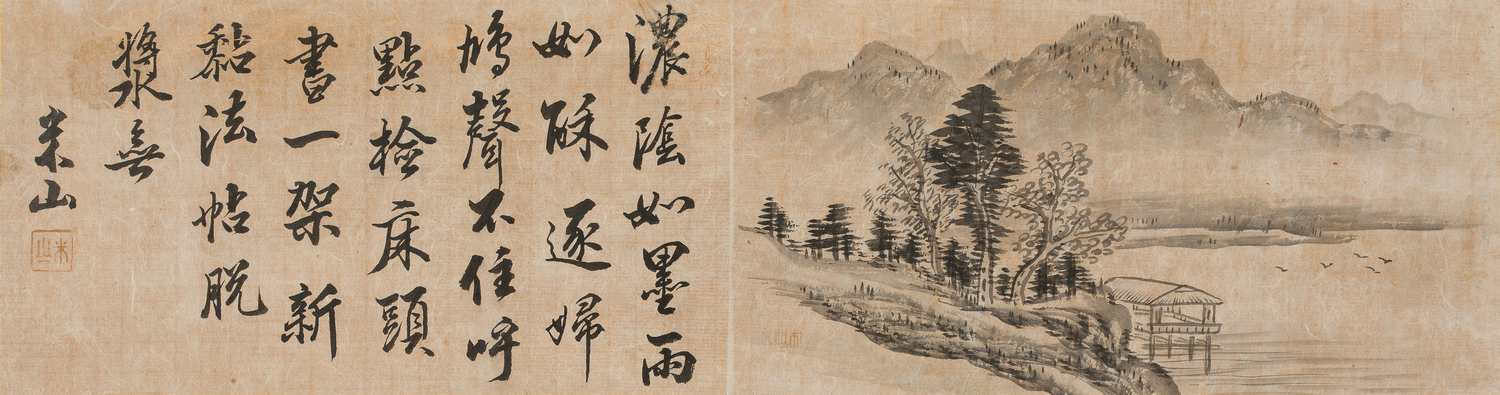 濃陰如墨雨
如酥逐婦
鳩聲不住呼
點檢床頭
書一架新
黏法帖脫
漿無
米山
米山